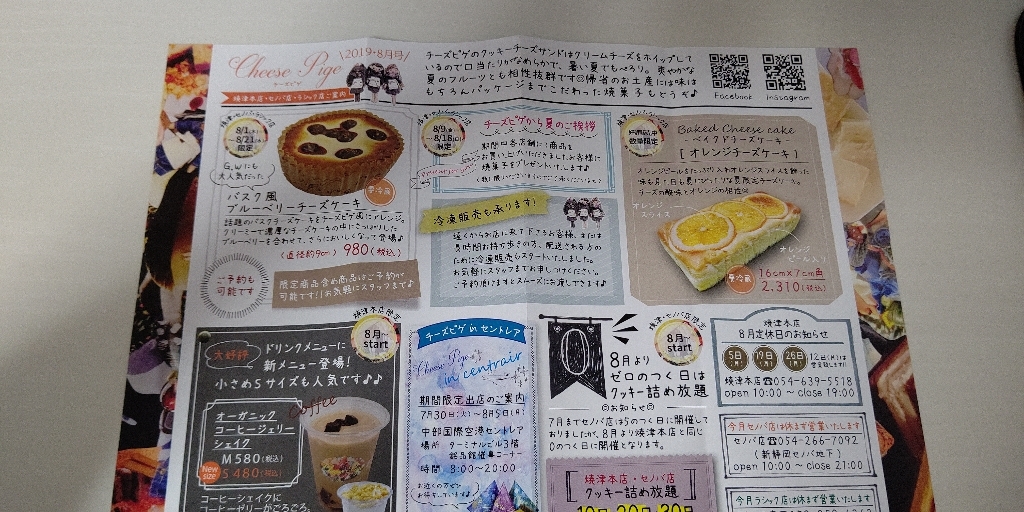 Cheese Pige
チーズピゲ
2019・8月号
焼津本店・セノバ店・ラシック店ご案内
チーズピゲのクッキーチーズサンドはクリームチーズをホイップして
いるので口当たりがなめらかで、暑い夏でもぺろり。爽やかな
夏のフルーツとも相性抜群です☺帰省のお土産には味は
もちろんパッケージまでこだわった焼菓子もどうぞ♪
Facebook
instagram
8/1(木)
～8/21(水)
限定
GWにも
大人気だった
バスク風
ブルーベリーチーズケーキ
要冷蔵
話題のバスクチーズケーキをチーズピゲ風にアレンジ。
クリーミーで濃厚なチーズケーキの中にさっぱりした
ブルーベリーを合わせて、さらにおいしくなって登場♪
(直径約9cm) 980(税込)
ご予約も
可能です
限定商品含め商品はご予約が
可能です!!お気軽にスタッフまで♪
8/9(金)
～8/18(日)
限定
チーズピゲから夏のご挨拶
期間中各店舗にて商品を
お買い上げいただきましたお客様に
焼菓子をプレゼントいたします♪
冷凍販売も承ります!
遠くからお店に来て下さるお客様、または
長時間お持ち歩きの方、配送される方の
ために冷凍販売もスタートいたしました。
お気軽にスタッフまでお申しつけください。
ご予約頂けますとスムーズにお渡しできます♪
数量限定
Baked Cheese cake
-ベイクドチーズケーキ-
[ オレンジチーズケーキ ]
チーズの酸味とオレンジの相性は
オレンジ
スライス
オレンジ
ピール入り
要冷蔵
16cm×7cm角
2,310(税込)
焼津本店限定
8月～
start
大好評
ドリンクメニューに
新メニュー登場!
小さめSサイズも人気です♪♪
オーガニック
コーヒージェリー
シェイク
M 580(税込)
New size
S 480(税込)
Coffee
コーヒーシェイクに
コーヒーゼリーがごろごろ。
チーズピゲ in セントレア
Cheese Pige
in centrair
期間限定出店のご案内
7月30日(火)～8月5日(月)
中部国際空港セントレア
場所 ターミナルビル3階
銘品館催事コーナー
時間 8:00～20:00
お近くの方ぜひ
お待ちしています♪
焼津・セノバ店限定
8月～
start
0
8月より
ゼロのつく日は
クッキー詰め放題
☺お知らせ☺
7月までセノバ店は5のつく日に開催して
おりましたが、8月より焼津本店と同じ
0のつく日に開催となります。
焼津本店・セノバ店
クッキー詰め放題
10日 20日 30日
焼津本店
8月定休日のお知らせ
5日(月)
19日(月)
26日(月)
12日(月)は
営業致します!
焼津本店☎054-639-5518
open 10:00 ～ close 19:00
今月セノバ店は休まず営業いたします
セノバ店☎054-266-7092
(新静岡セノバ地下)
open 10:00 ～ close 21:00
今月ラシック店は休まず営業いたします